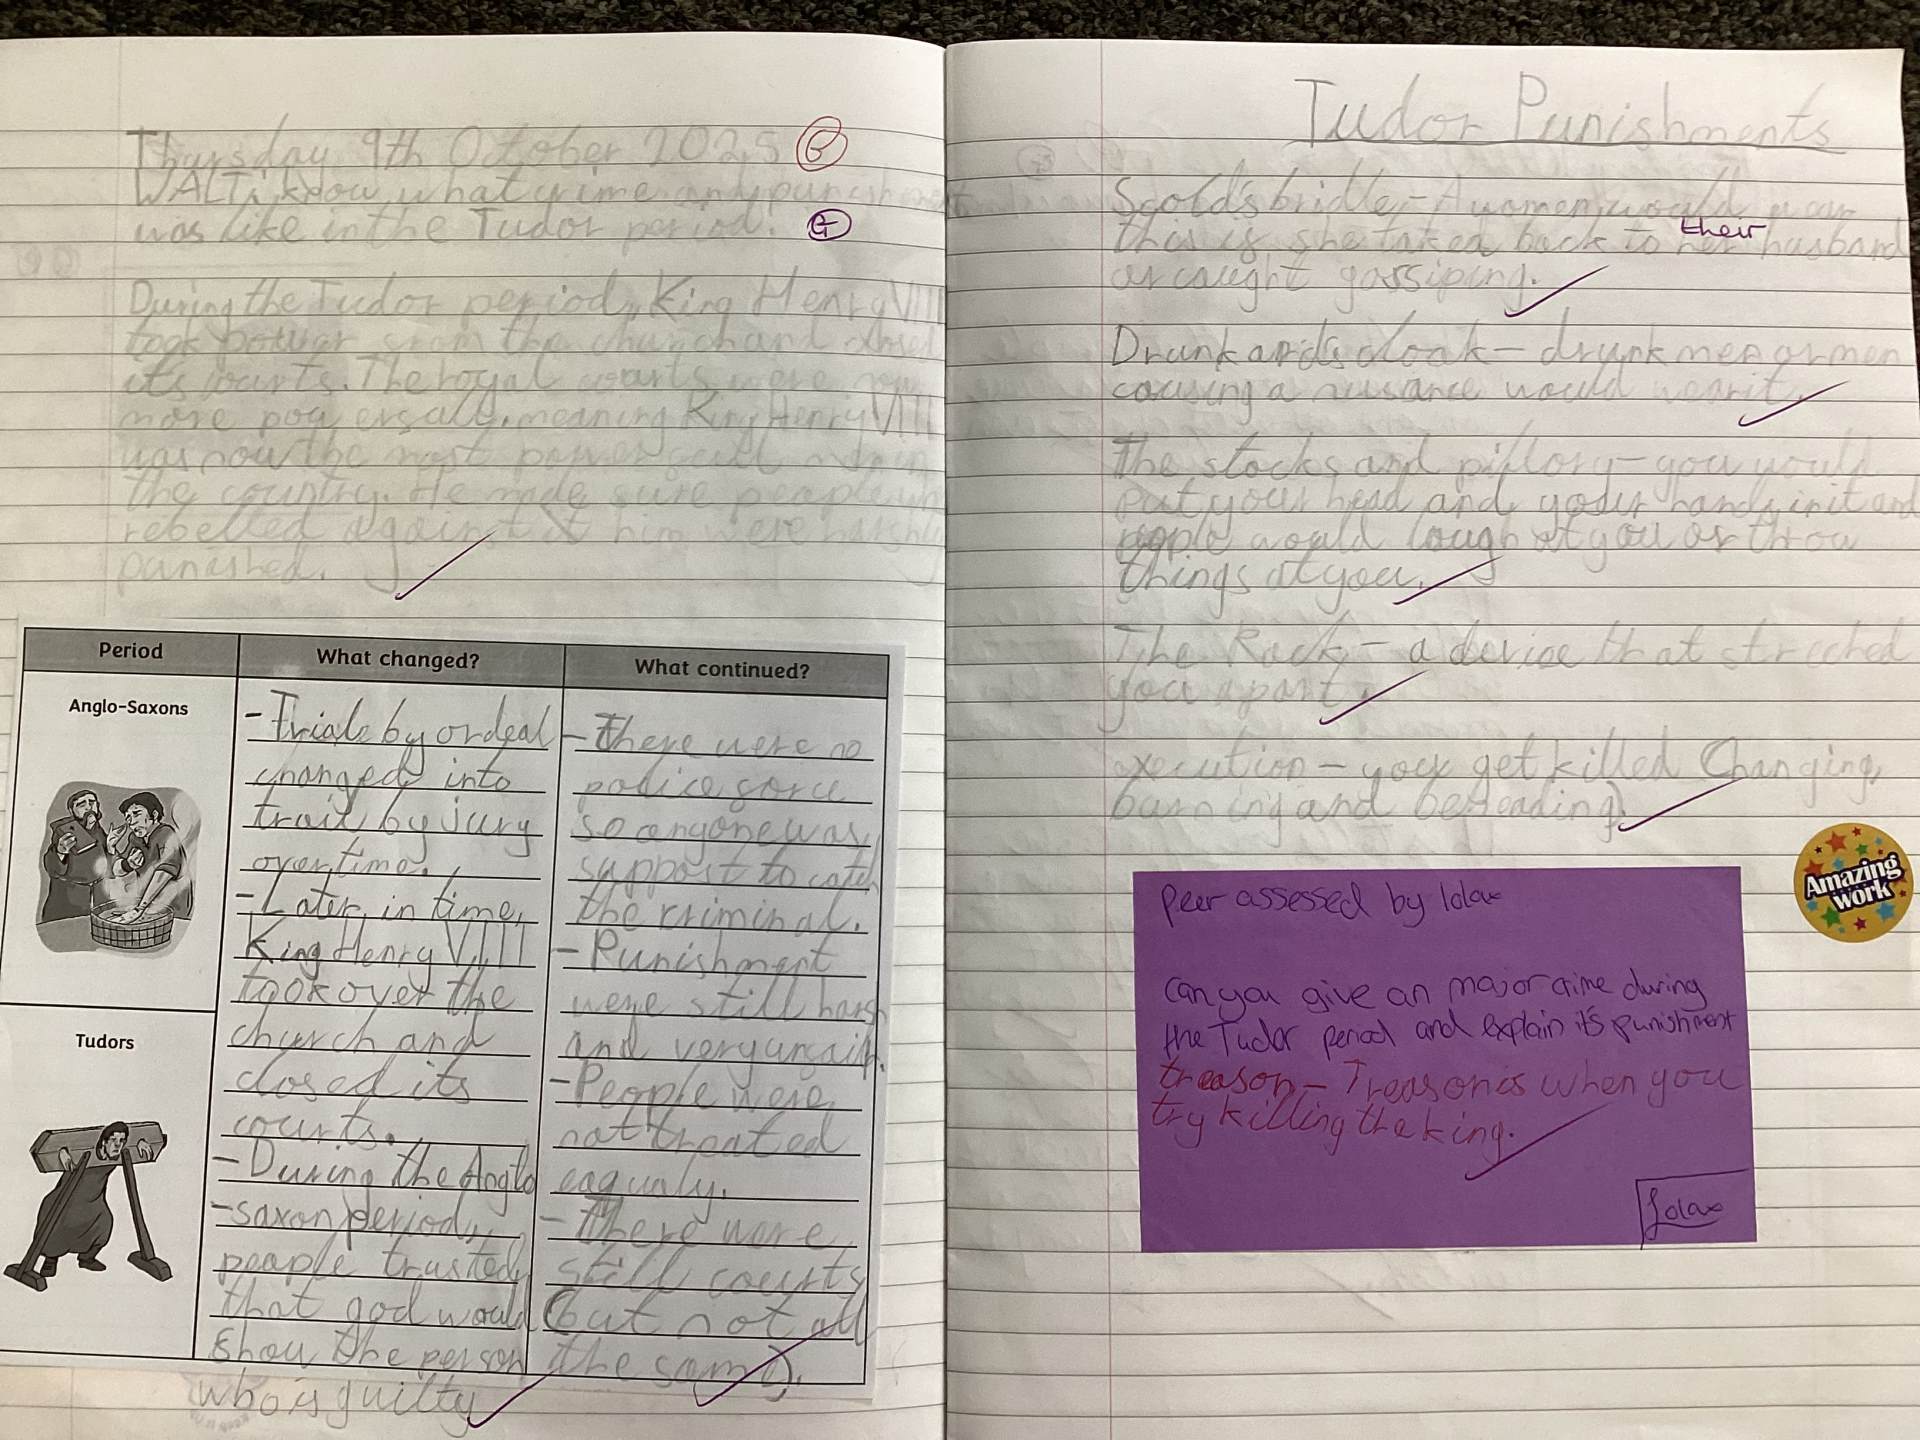 Thursday 9th October 2025 G
WALT: know what crime and punishment
was like in the Tudor period. G
During the Tudor period, King Henry VIII
took power from the church and closed
it's courts. The royal courts were now
more powersall, meaning King Henry VIII
was now the most powersull man in
the country. He made sure people who
rebelled against him were harshly
punished.
Period
What changed?
What continued?
Anglo-Saxons
Tudors
- Trials by ordeal
changed into
trail by jury
over time.
- Later in time,
King Henry VIII
took over the
church and
closed its
courts.
- During the Anglo
-saxon period,
people trusted
that god would
show the person
who is guilty
- There were no
police force
so anyone was
suppost to catch
the kriminal.
- Punishment
were still harsh
and very unfair.
- People were
not treated
eaqualy.
- There were
still courts
(but not all
the same).
Tudor Punishments
Scold's bridle - A women would wear
this if she talked back to their husband
or caught gossiping.
Drunkard's cloak - drunk men or men
causing a nuisance would wear it.
The stocks and pillory - you would
put your head and your hands in it and
people would laugh at you or throw
things at you.
The Rack - a device that streched
you apart.
execution - you get killed (hanging,
burning and beheading).
Amazing
work
Peer assessed by lola
can you give an major crime during
the Tudor period and explain it's punishment
treason - Treason is when you
try killing the king.
Lola